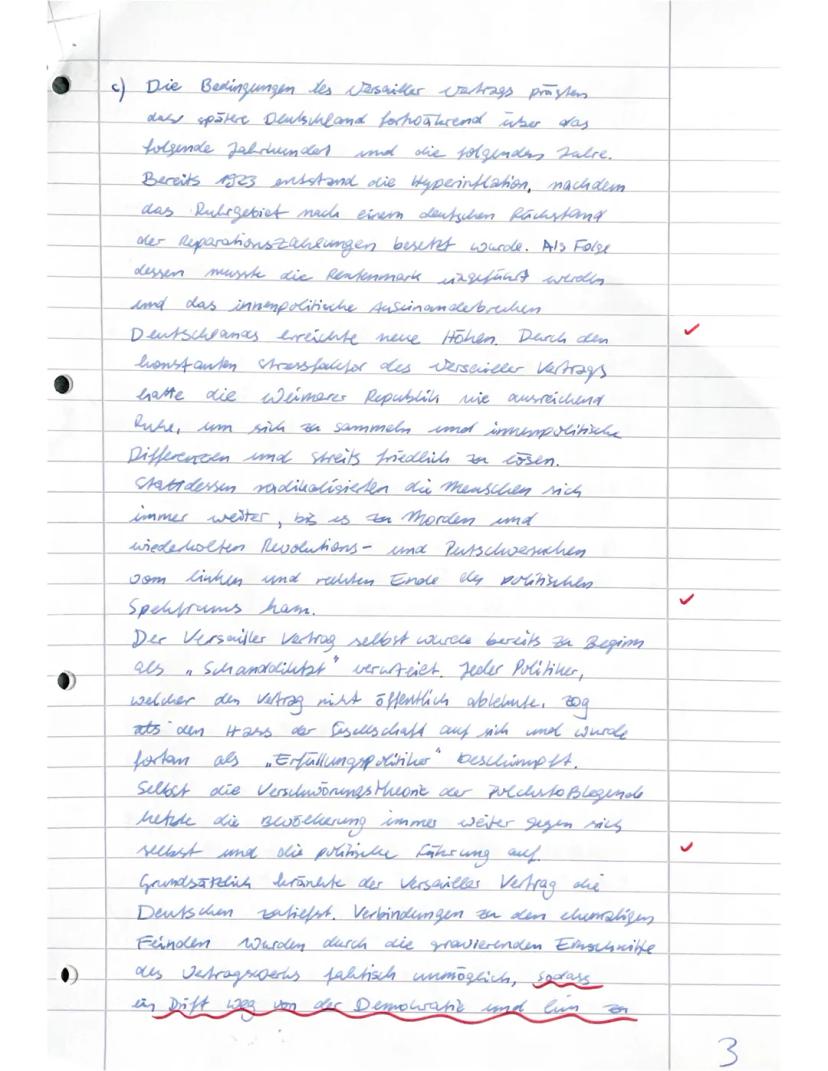 c) Die Bedingungen des Versailler Vertrags prägten
das spätere Deutschland fortwährend über das
folgende Jahrhundert und die folgenden Jahre.
Bereits 1923 entstand die Hyperinflation, nachdem
das Ruhrgebiet nach einem deutschen Rückstand
der Reparationszahlungen besetzt wurde. Als Folge
dessen musste die Rentenmark eingeführt werden
und das innenpolitische Auseinanderbrechen
Deutschlands erreichte neue Höhen. Durch den
konstanten Stressfaktor des Versailler Vertrags
hatte die Weimarer Republik nie ausreichend
Ruhe, um sich zu sammeln und innenpolitische
Differenzen und Streits friedlich zu lösen.
Stattdessen radikalisierten die Menschen sich
immer weiter, bis es zu Morden und
wiederholten Revolutions- und Putschversuchen
vom linken und rechten Ende des politischen
Spektrums kam.
Der Versailler Vertrag selbst wurde bereits zu Beginn
als „Schanddiktat" verurteilt. Jeder Politiker,
welcher den Vertrag nicht öffentlich ablehnte, zog
den Hass der Gesellschaft auf sich und wurde
fortan als „Erfüllungspolitiker" beschimpft.
Selbst die Verschwörungstheorie der Dolchstoßlegende
hetzte die Bevölkerung immer weiter gegen sich
selbst und die politische Führung auf.
Grundsätzlich kränkte der Versailler Vertrag die
Deutschen zutiefst. Verbindungen zu den ehemaligen
Feinden wurden durch die gravierenden Einschnitte
des Vertragswerks faktisch unmöglich, sodass
ein Drift weg von der Demokratie und hin zu
3